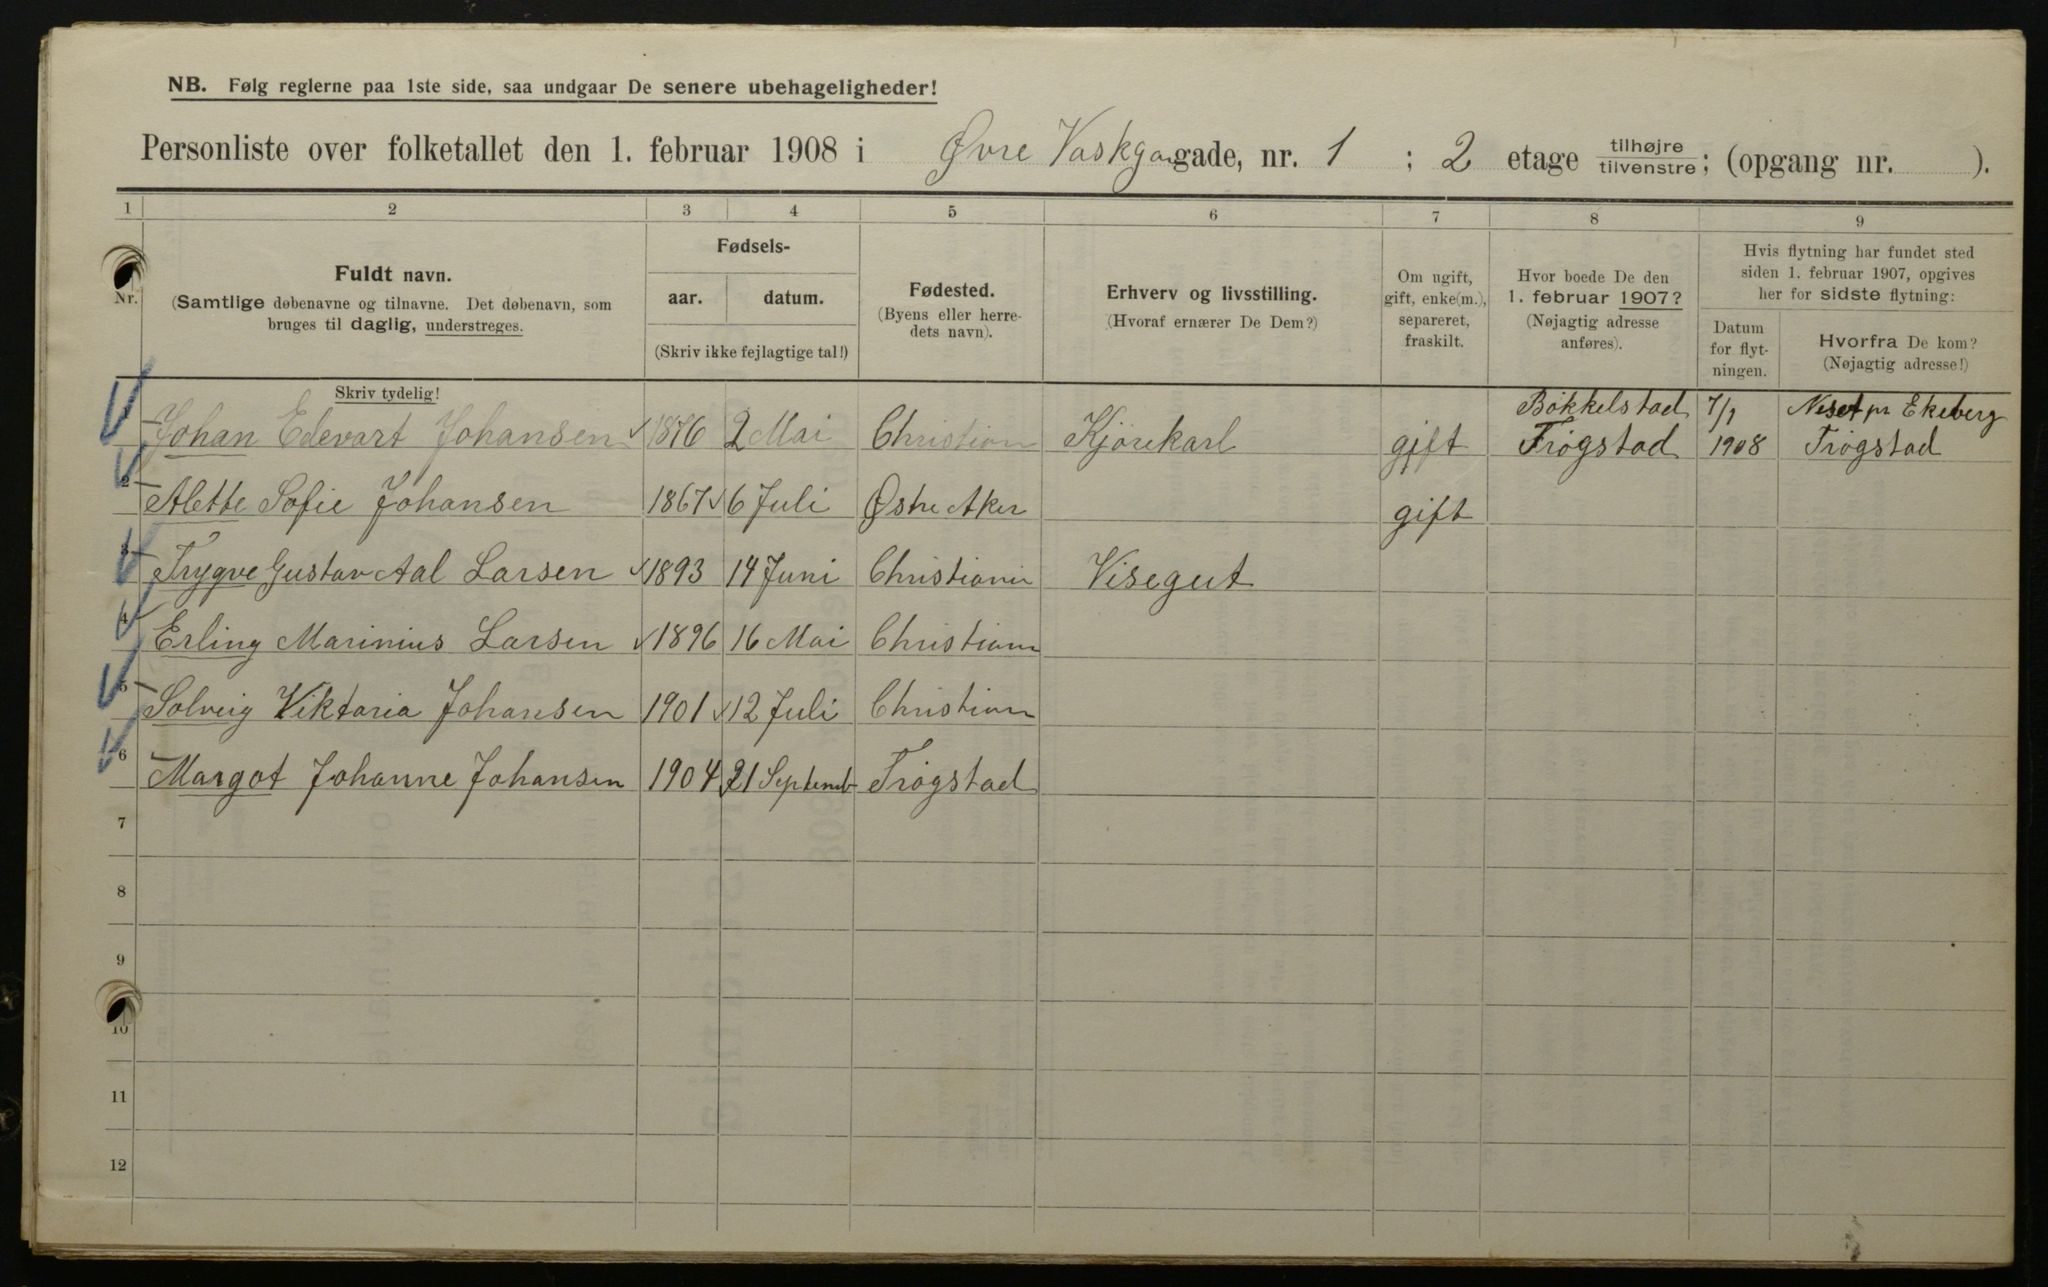 NB. Følg reglerne paa 1ste side, saa undgaar De senere ubehageligheder!
Personliste over folketallet den 1. februar 1908 i Øvre Vaskgangade, nr. 1 ; 2 etage tilhøjre tilvenstre; (opgang nr. ).
1 2 3 4 5 6 7 8 9
Nr.
Fuldt navn.
(Samtlige døbenavne og tilnavne. Det døbenavn, som
bruges til daglig, understreges.
Skriv tydelig!
Fødsels-
aar. datum.
(Skriv ikke fejlagtige tal!)
Fødested.
(Byens eller herre-
dets navn).
Erhverv og livsstilling.
(Hvoraf ernærer De Dem?)
Om ugift,
gift, enke(m.),
separeret,
fraskilt.
Hvor boede De den
1. februar 1907?
(Nøjagtig adresse
anføres).
Hvis flytning har fundet sted
siden 1. februar 1907, opgives
her for sidste flytning:
Datum
for flyt-
ningen.
Hvorfra De kom?
(Nøjagtig adresse!)
Båkkelstad 7/1 Neset pr Ekeberg
1 Johan Edevart Johansen 1876 2 Mai Christian Kjörekarl gift Trögstad 1908 Trögstad
2 Alette Sofie Johansen 1867 6 Juli Østre Aker gift
3 Trygve Gustav Aal Larsen 1893 14 Juni Christiania Visegut
4 Erling Marinius Larsen 1896 16 Mai Christian
5 Solveig Viktoria Johansen 1901 12 Juli Christian
6 Margot Johanne Johansen 1904 21 Septemb Trögstad
7
8
9
10
11
12